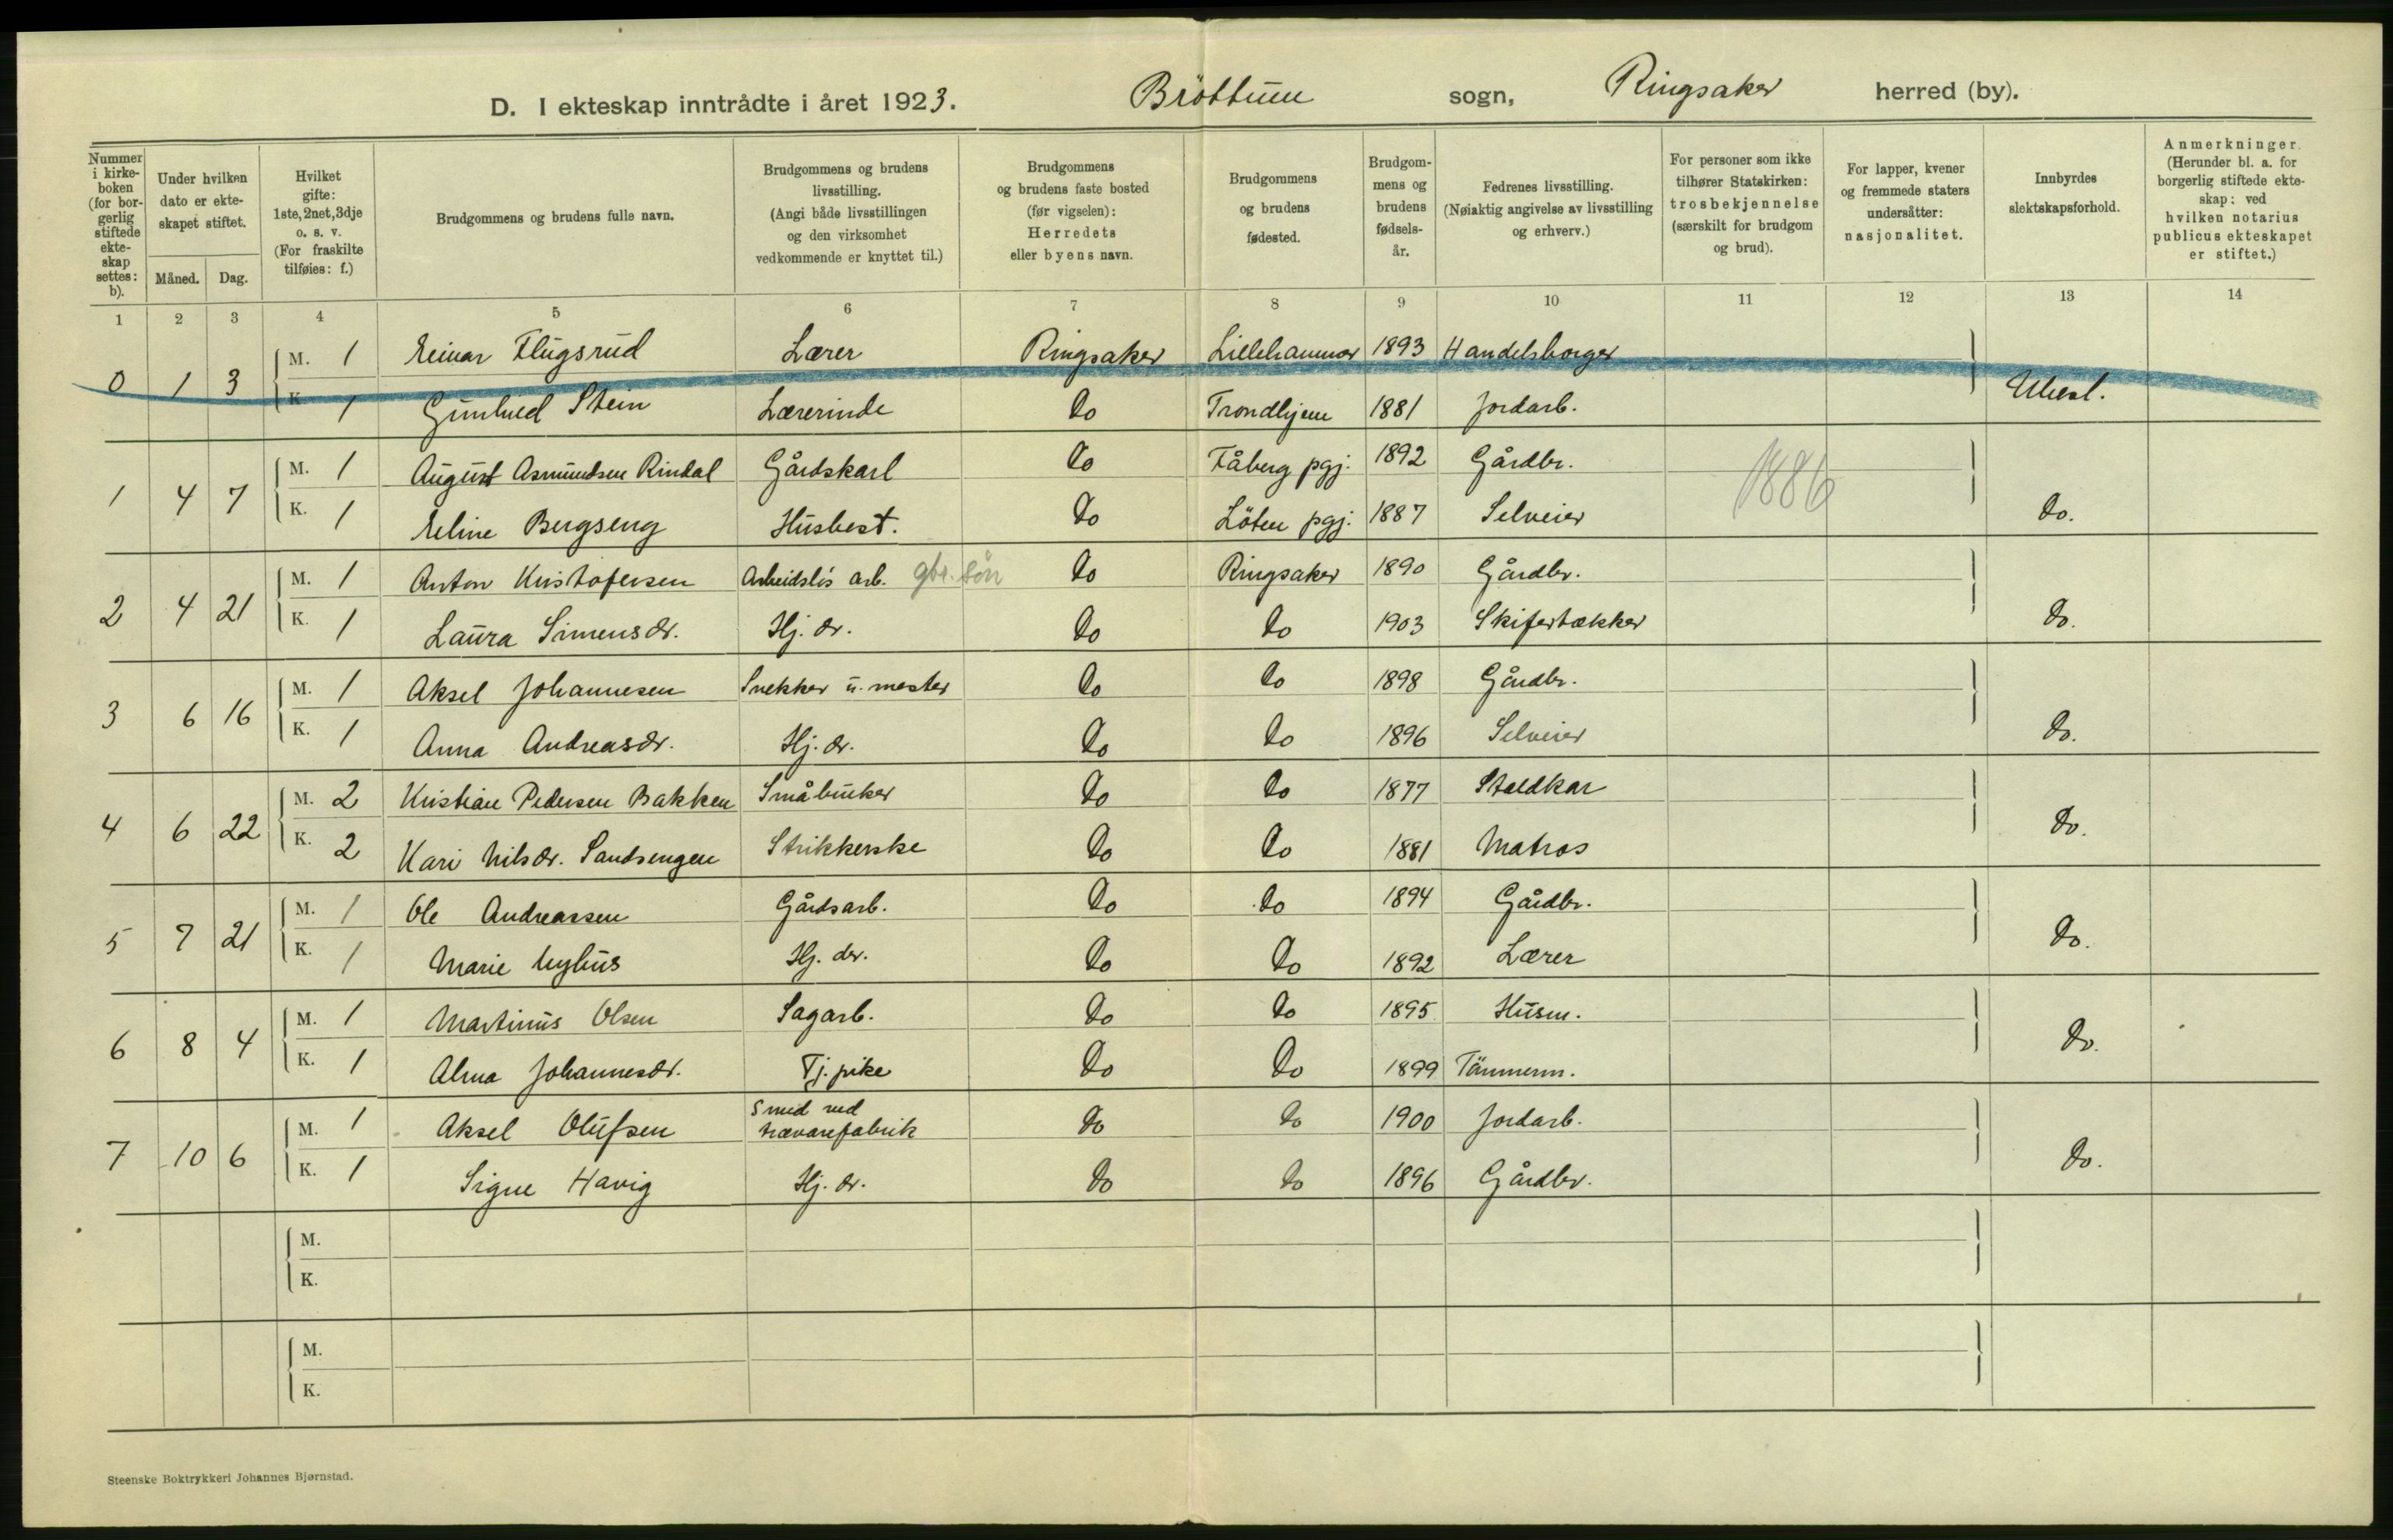 D. I ekteskap inntrådte i året 1923. Bröttum sogn, Ringsaker herred (by).
Nummer i kirkeboken (for borgerlig stiftede ekteskap settes: b).
Under hvilken dato er ekteskapet stiftet.
Måned. Dag.
Hvilket gifte: 1ste, 2net, 3dje o. s. v. (For fraskilte tilføies: f.)
Brudgommens og brudens fulle navn.
Brudgommens og brudens livsstilling. (Angi både livsstillingen og den virksomhet vedkommende er knyttet til.)
Brudgommens og brudens faste bosted (før vigselen): Herredets eller byens navn.
Brudgommens og brudens fødested.
Brudgommens og brudens fødselsår.
Fedrenes livsstilling. (Nøiaktig angivelse av livsstilling og erhverv.)
For personer som ikke tilhører Statskirken: trosbekjennelse (særskilt for brudgom og brud).
For lapper, kvener og fremmede staters undersåtter: nasjonalitet.
Innbyrdes slektskapsforhold.
Anmerkninger. (Herunder bl. a. for borgerlig stiftede ekteskap: ved hvilken notarius publicus ekteskapet er stiftet.)
1 2 3 4 5 6 7 8 9 10 11 12 13 14
0 1 3 M. 1 Einar Flugsrud Lærer Ringsaker Lillehammer 1893 Handelsborger
K. 1 Gunhild Stein Lærerinde Do Trondhjem 1881 Jordarb. Ubesl.
1 4 7 M. 1 August Asmundsen Rindal Gårdskarl Do Fåberg pgj. 1892 Gårdbr.
K. 1 Eline Bergseng Husbest. Do Löten pgj. 1887 Selveier 1886 Do.
2 4 21 M. 1 Anton Kristofersen Arbeidslös arb. gbr. sön Do Ringsaker 1890 Gårdbr.
K. 1 Laura Simensdr. Hj. dr. Do Do 1903 Skifertækker Do.
3 6 16 M. 1 Aksel Johannesen Snekker u. mester Do Do 1898 Gårdbr.
K. 1 Anna Andreasdr. Hj. dr. Do Do 1896 Selveier Do.
4 6 22 M. 2 Kristian Pedersen Bakken Småbruker Do Do 1877 Staldkar
K. 2 Kari Nilsdr. Sandsengen Strikkerske Do Do 1881 Matros Do.
5 7 21 M. 1 Ole Andreassen Gårdsarb. Do Do 1894 Gårdbr.
K. 1 Marie Nyhus Hj. der. Do Do 1892 Lærer Do.
6 8 4 M. 1 Martinus Olsen Sagarb. Do Do 1895 Husm.
K. 1 Alma Johannesdr. Tj. pike Do Do 1899 Tömmerm. Do.
7 10 6 M. 1 Aksel Olufsen Smed ved trævarefabrik Do Do 1900 Jordarb.
K. 1 Signe Havig Hj. dr. Do Do 1896 Gårdbr. Do.
M.
K.
M.
K.
Steenske Boktrykkeri Johannes Bjørnstad.